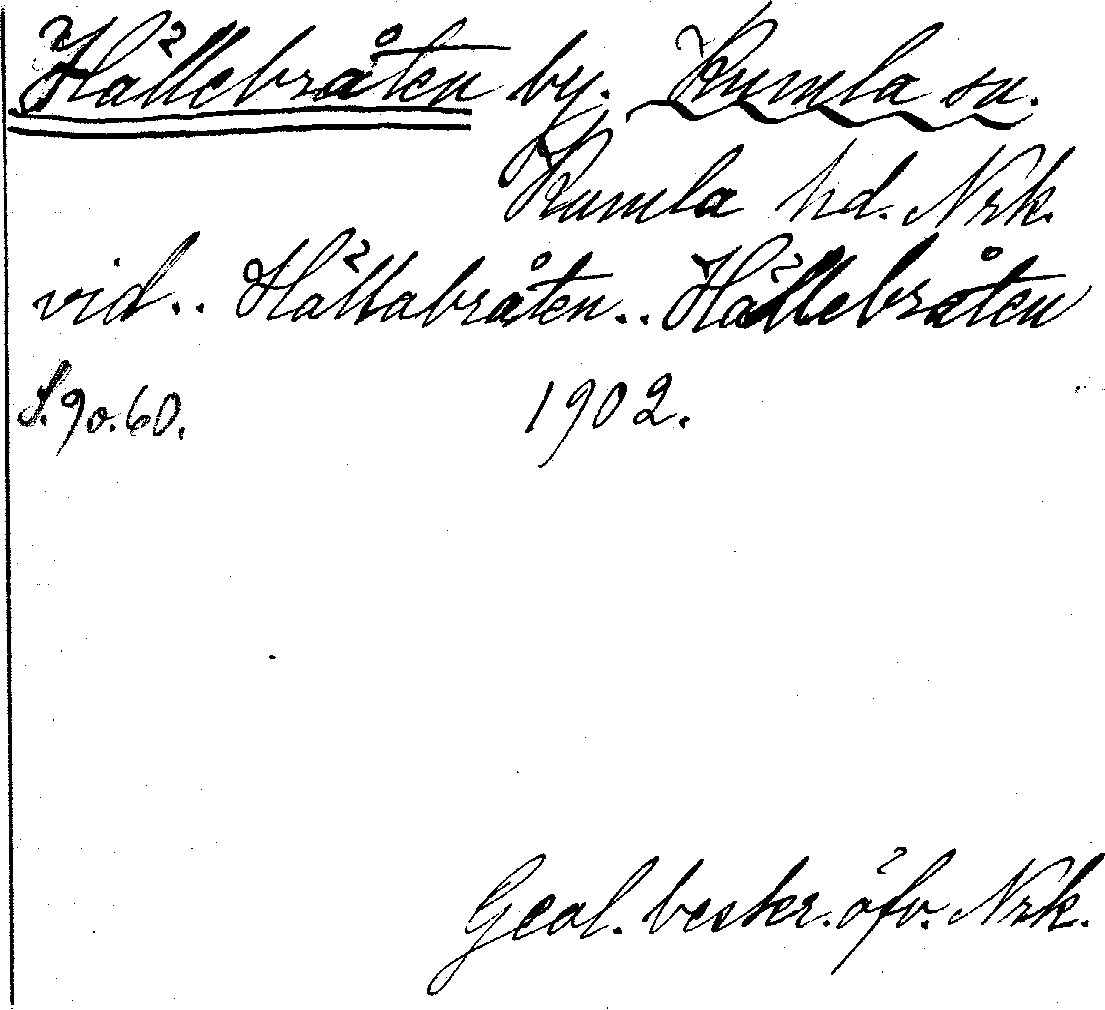 Hällebråten by. Kumla sn.
Kumla hd. Nrk.
vid.. Hällabråten.. Hällebråten
S. 90. 60. 1902.
Geol. beskr. öfv. Nrk.